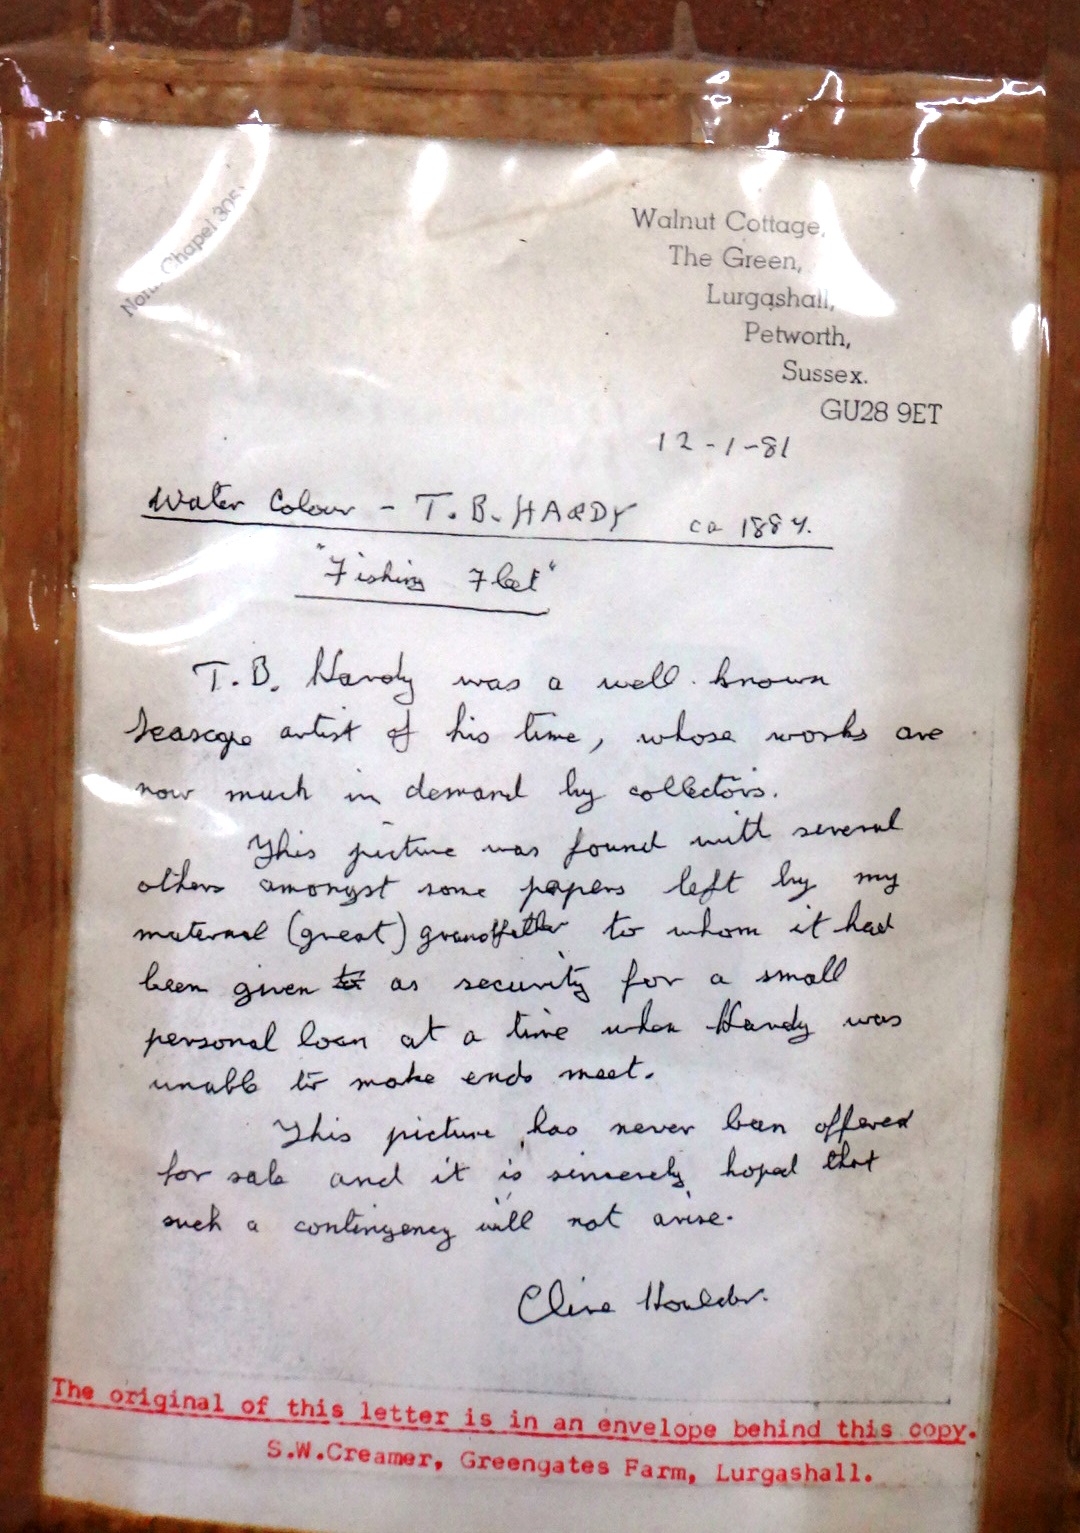 Chapel 305
Walnut Cottage,
The Green,
Lurgashall,
Petworth,
Sussex.
GU28 9ET
12-1-81
Water Colour - T.B. HARDY ca 1884.
"Fishing Fleet"
T.B. Hardy was a well known
seascape artist of his time, whose works are
now much in demand by collectors.
This picture was found with several
others amongst some papers left by my
maternal (great) grandfather to whom it had
been given as security for a small
personal loan at a time when Hardy was
unable to make ends meet.
This picture has never been offered
for sale and it is sincerely hoped that
such a contingency will not arise.
Clive Houlder.
The original of this letter is in an envelope behind this copy.
S.W.Creamer, Greengates Farm, Lurgashall.